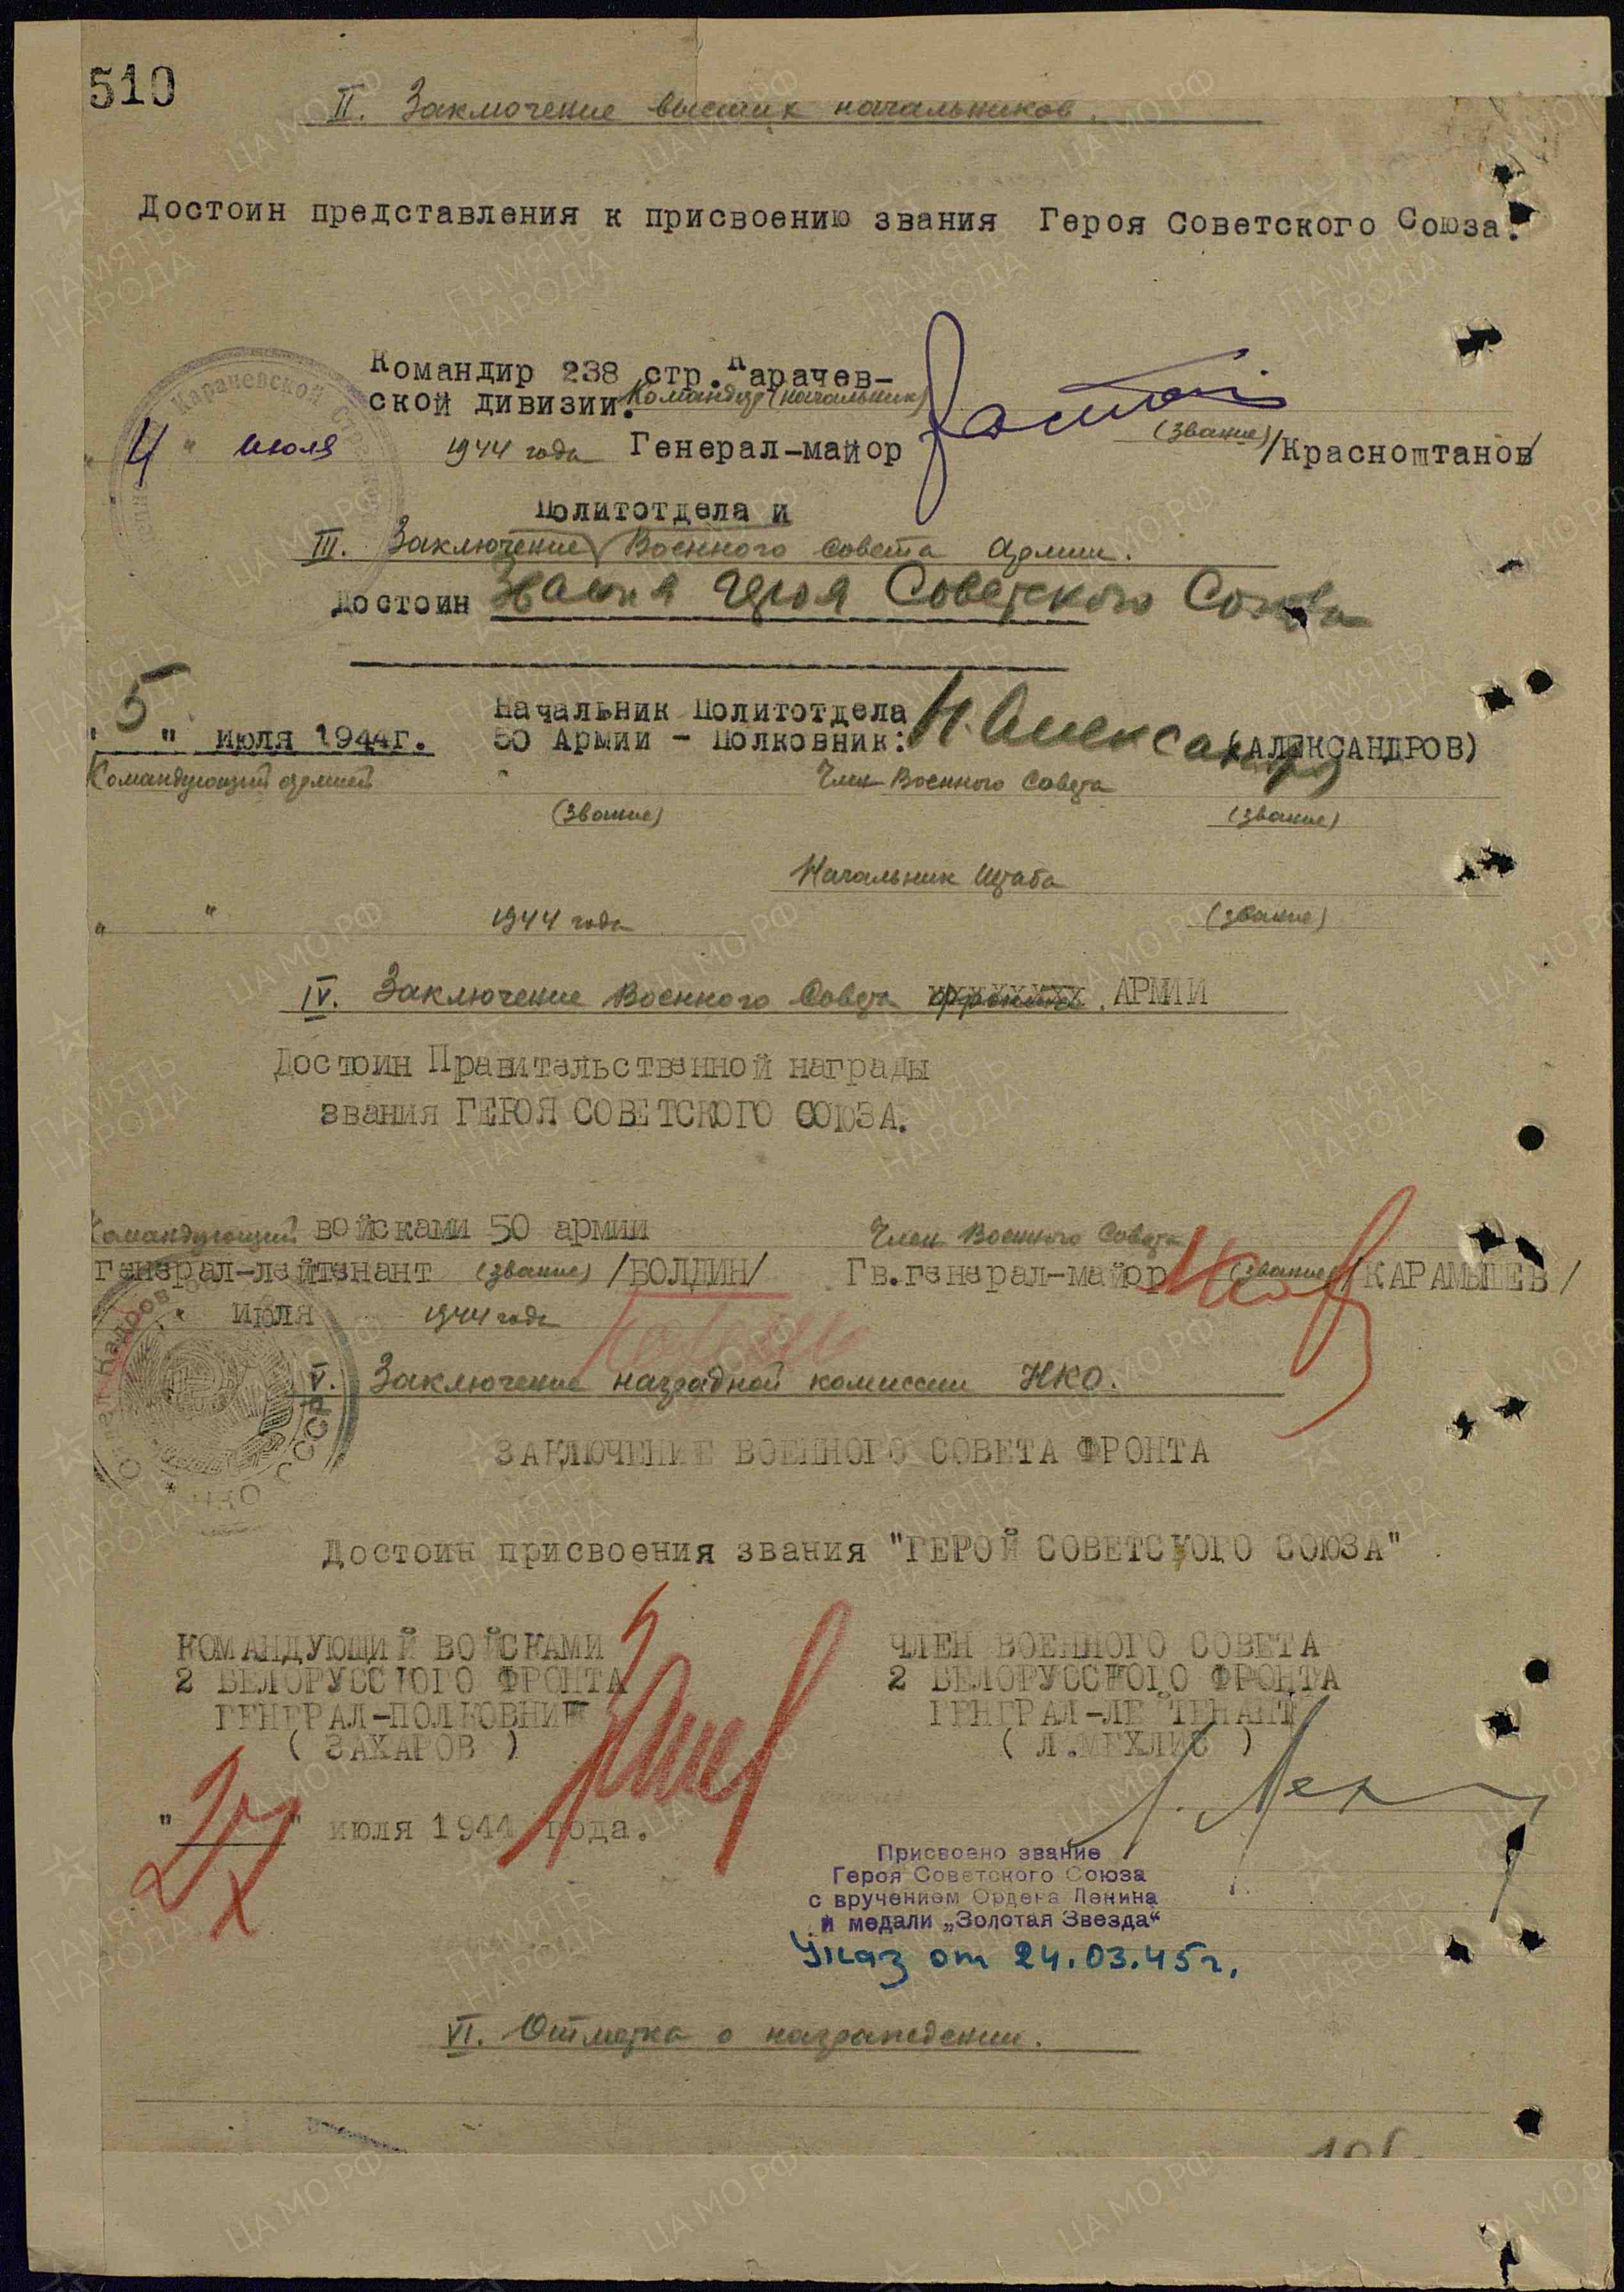 510
II. Заключение высших начальников.
Достоин представления к присвоению звания Героя Советского Союза.
Командир 238 стр. Карачев-
ской дивизии. Командир (начальник)
"4" июля 1944 года Генерал-майор (звание) /Красноштанов/
Политотдела и
III. Заключение Военного Совета Армии.
Достоин звания Героя Советского Союза
"5" июля 1944г.
Начальник Политотдела
50 Армии - Полковник: (АЛЕКСАНДРОВ)
Командующий армией Член Военного Совета
(звание) (звание)
Начальник Штаба
" " 1944 года (звание)
IV. Заключение Военного Совета фронта. АРМИИ
Достоин Правительственной награды
звания ГЕРОЯ СОВЕТСКОГО СОЮЗА.
Командующий войсками 50 армии Член Военного Совета
генерал-лейтенант (звание) /БОЛДИН/ Гв.генерал-майор (звание) /КАРАМЫШЕВ/
" июля 1944 года
V. Заключение наградной комиссии НКО.
ЗАКЛЮЧЕНИЕ ВОЕННОГО СОВЕТА ФРОНТА
Достоин присвоения звания "ГЕРОЙ СОВЕТСКОГО СОЮЗА"
КОМАНДУЮЩИЙ ВОЙСКАМИ
2 БЕЛОРУССКОГО ФРОНТА
ГЕНЕРАЛ-ПОЛКОВНИК
( ЗАХАРОВ )
ЧЛЕН ВОЕННОГО СОВЕТА
2 БЕЛОРУССКОГО ФРОНТА
ГЕНЕРАЛ-ЛЕЙТЕНАНТ
( Л.МЕХЛИС )
" " июля 1944 года.
Присвоено звание
Героя Советского Союза
с вручением Ордена Ленина
и медали „Золотая Звезда“
Указ от 24.03.45г.
VI. Отметка о награждении.
ЦА МО РФ
ПАМЯТЬ НАРОДА